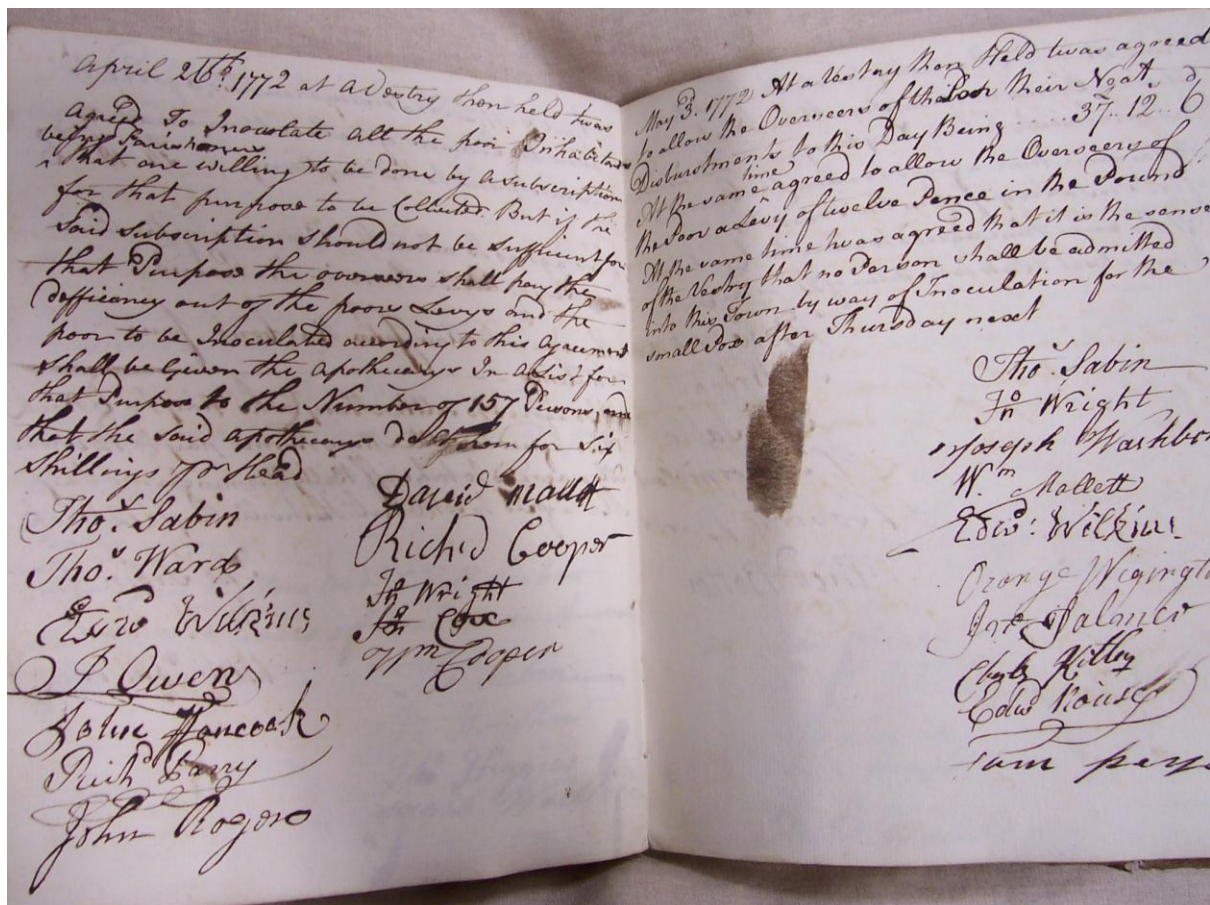 April 26th. 1772 at a Vestry then held twas
agreed To Inoculate all the poor Inhabitants
being Parishoners
that are willing to be done by a subscription
for that purpose to be Collected. But if the
Said subscription should not be sufficient for
that Purpose the overseers shall pay the
defficiency out of the poors Levys and the
poor to be Inoculated according to this agreement
shall be Given the apothecarys In a List for
that Purpose to the Number of 157 Persons, and
that the said apothecarys do them for Six
Shillings pr Head
Thos. Sabin
Thos. Ward
Edwd Wilkins
J Owen
John Hancock
Richd Parry
John Rogers
David Mallett
Richd Cooper
Jn Wright
Jn Cox
Wm Cooper
May 3d. 1772 At a Vestry then Held twas agreed
to allow the Overseers of the Poor their Neat
Disburstments to this Day Being ..... 37..12..6
At the same time agreed to allow the Overseers of
the Poor a Levy of twelve Pence in the Pound
At the same time twas agreed that it is the sense
of the Vestry that no Person shall be admitted
into this Town by way of Inoculation for the
small Pox after Thursday next
Thos. Sabin
Jno Wright
Joseph
Wm. Mallett
Edwd: Wilkins
Orange
Jno Palmer
Charles
Edwd